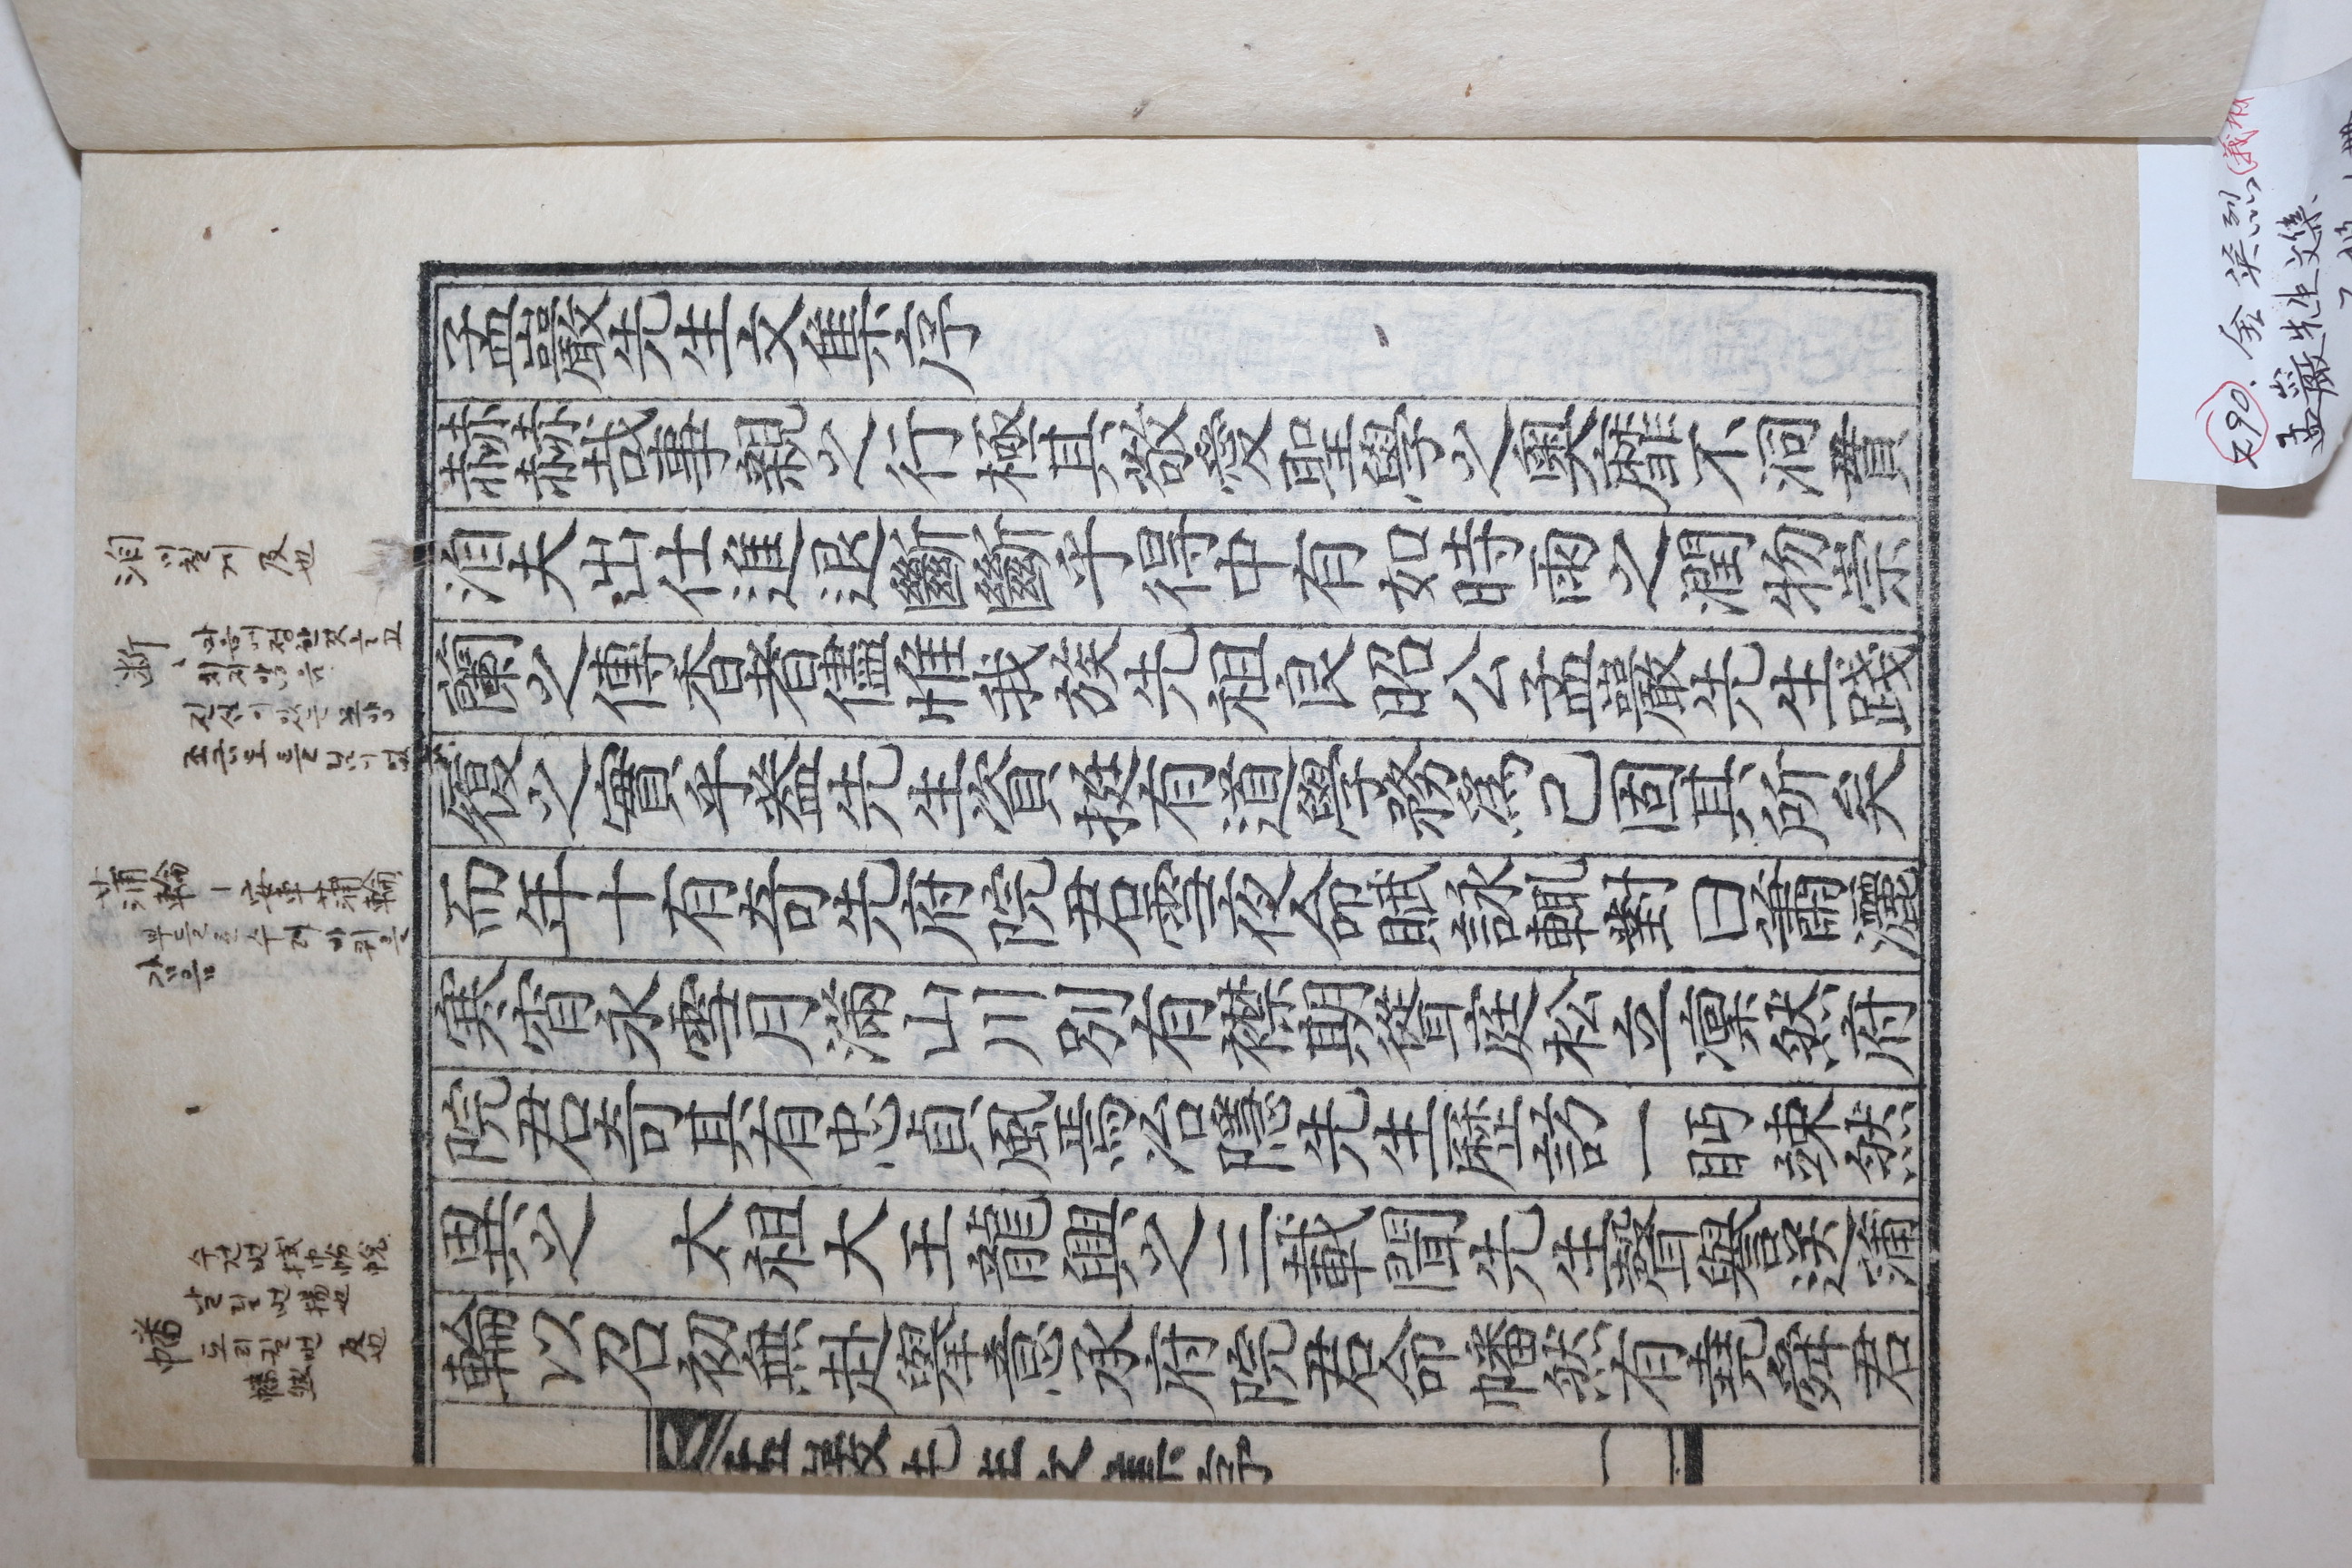 孟巖先生文集序
赫赫哉事親之行極其敬愛聖學之奧靡不洞貫
洎夫出仕進退斷斷乎得中有如時雨之潤物崇
蘭之傳香者儘惟我族先祖良昭公孟巖先生踐
履之實乎蓋先生資挺有道學務爲己固其所矣
而年十有奇先府院君雪夜命賦詠輒對曰蕭灑
寒宵永雪月滿山川別有襟期聳庭松立凜然府
院君奇其有忠貞風焉冶隱先生歷訪一眄竦然
異之 太祖大王龍興之三載聞先生聲譽送蒲
輪以召初無赴擧意承府院君命幡然有堯舜君
孟巖先生文集序
一
洎 미칠게 及也
断、마음에 정한것은고
치지않음
진심이있는모양
조금도틀님이없
蒲輪ー安車蒲輪
부들로수레바퀴를
감음
수건번 拭巾帉帨
날릴번 揚也
幡 도리킬번 反也
幡然
290. 金英烈(義城
孟巖先生文集